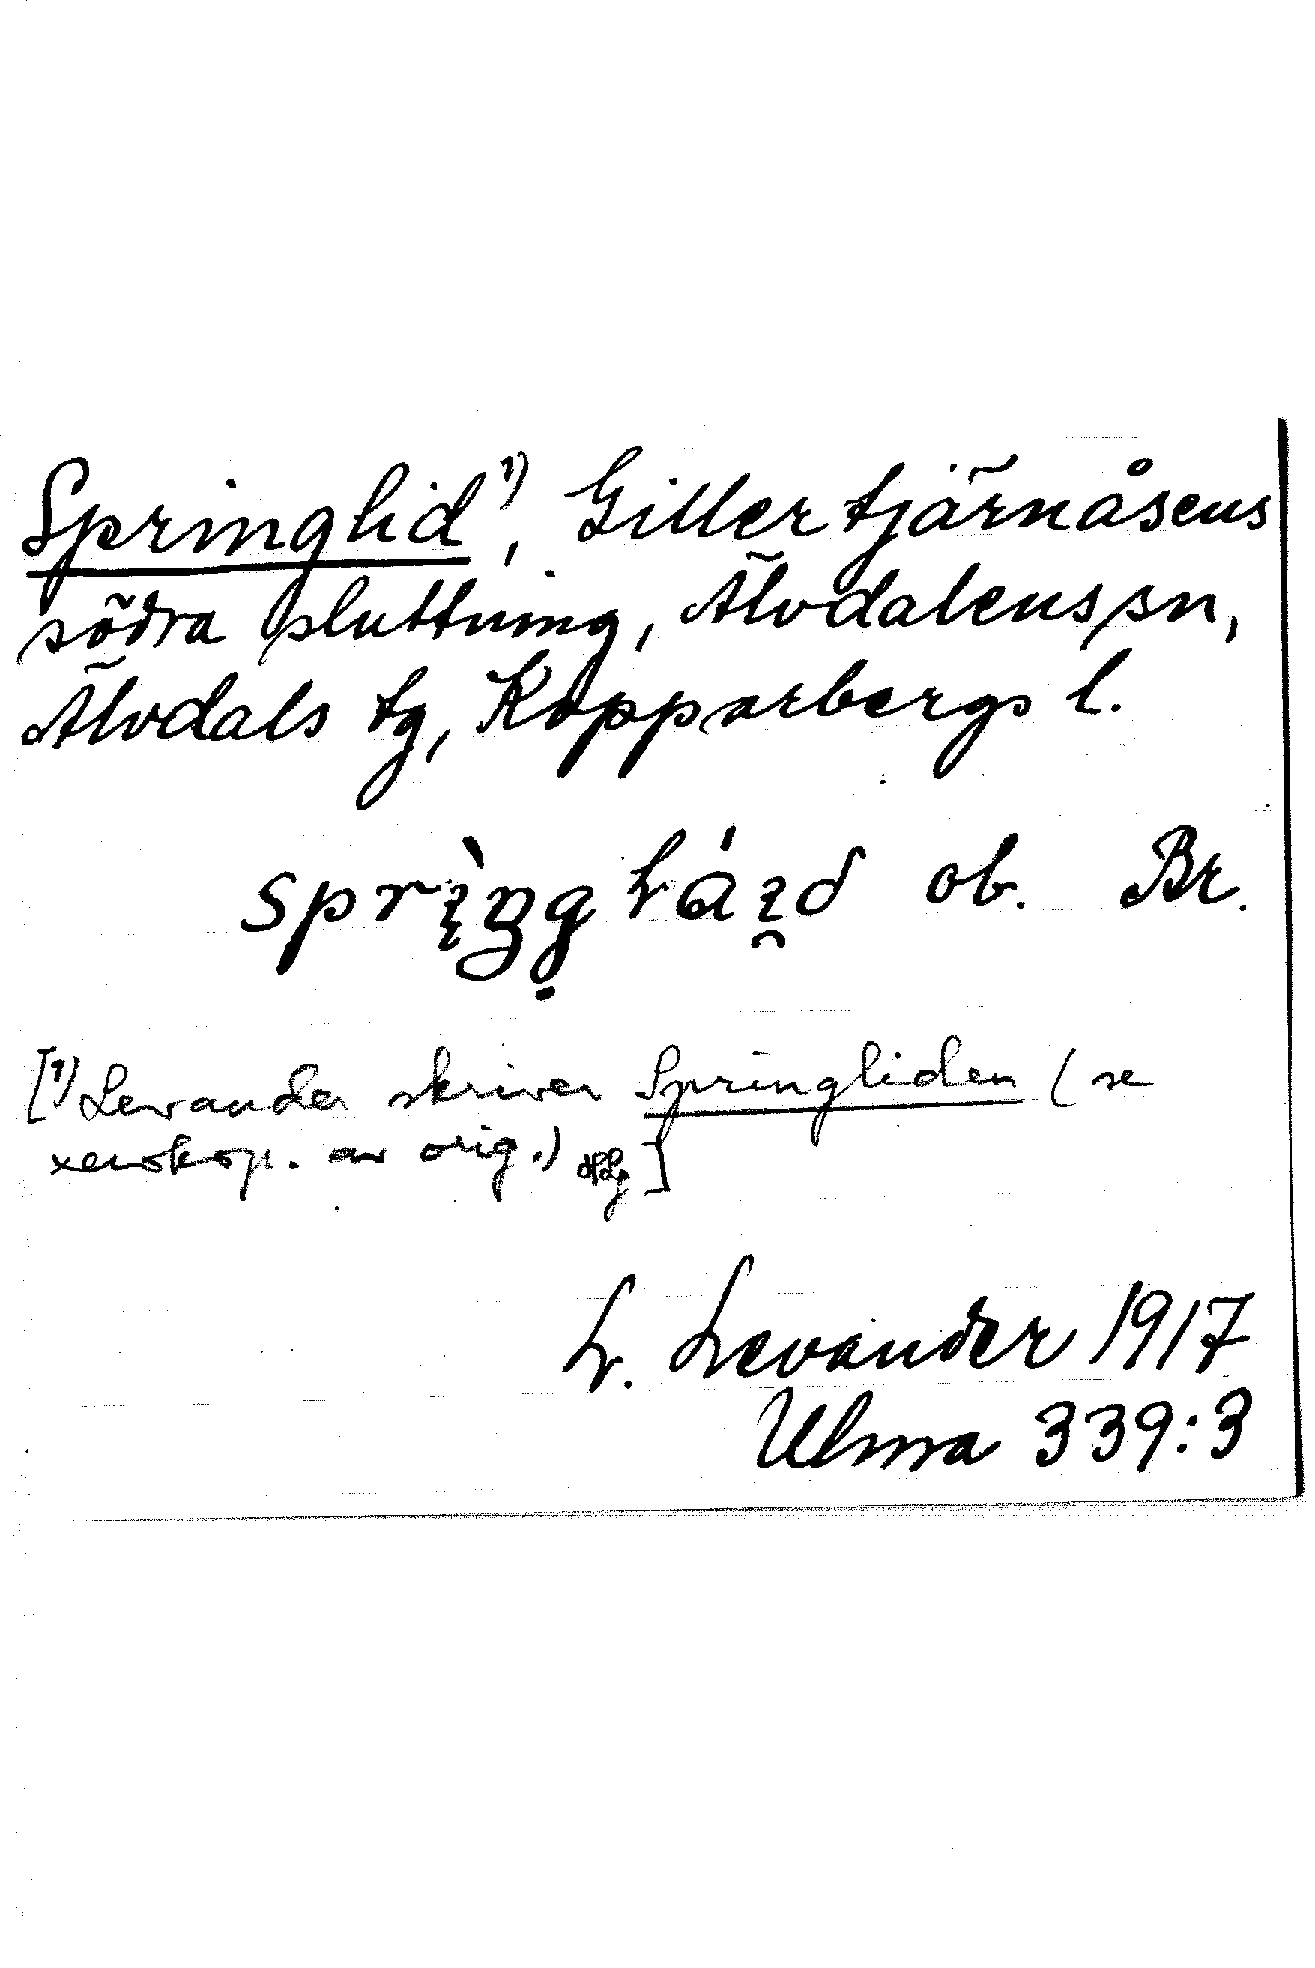 Springlid¹), Gillertjärnåsens
södra sluttning, Älvdalens sn,
Älvdals tg, Kopparbergs l.
ob. Br.
[¹) Levander skriver Springliden (se
xerokop. av orig.) ]
L. Levander 1917
Ulma 339:3